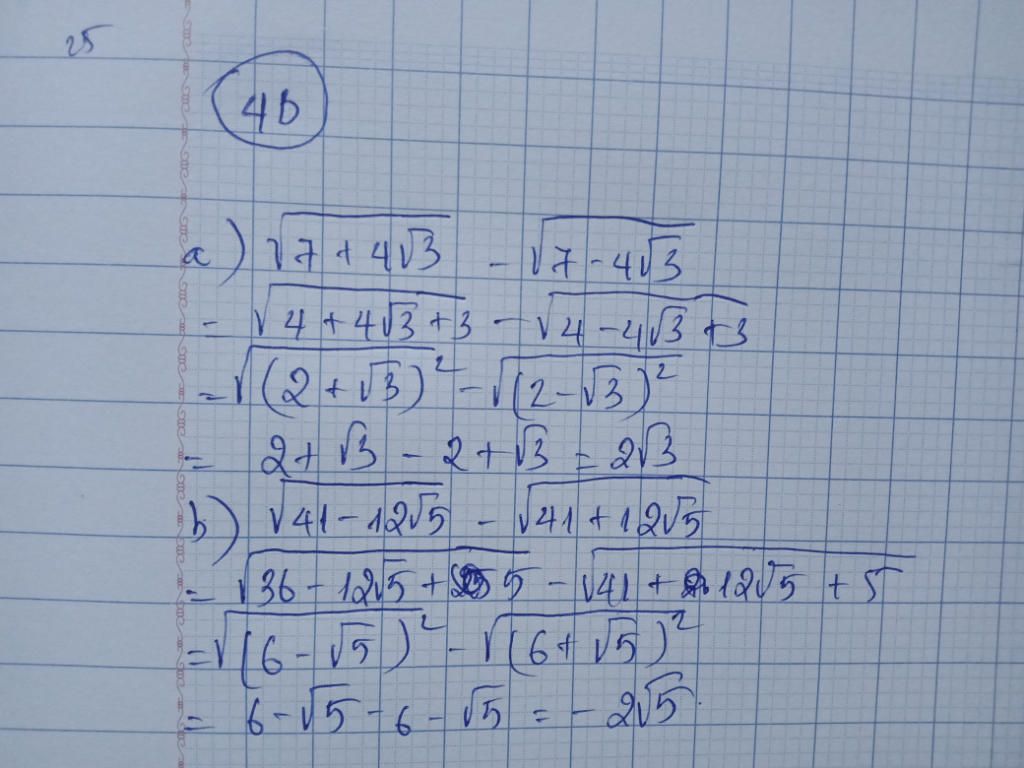 25
4b
a) √(7 + 4√3) - √(7 - 4√3)
= √(4 + 4√3 + 3) - √(4 - 4√3 + 3)
= √((2 + √3)²) - √((2 - √3)²)
= 2 + √3 - 2 + √3 = 2√3
b) √(41 - 12√5) - √(41 + 12√5)
= √(36 - 12√5 + 5) - √(41 + 12√5 + 5)
= √((6 - √5)²) - √((6 + √5)²)
= 6 - √5 - 6 - √5 = - 2√5.